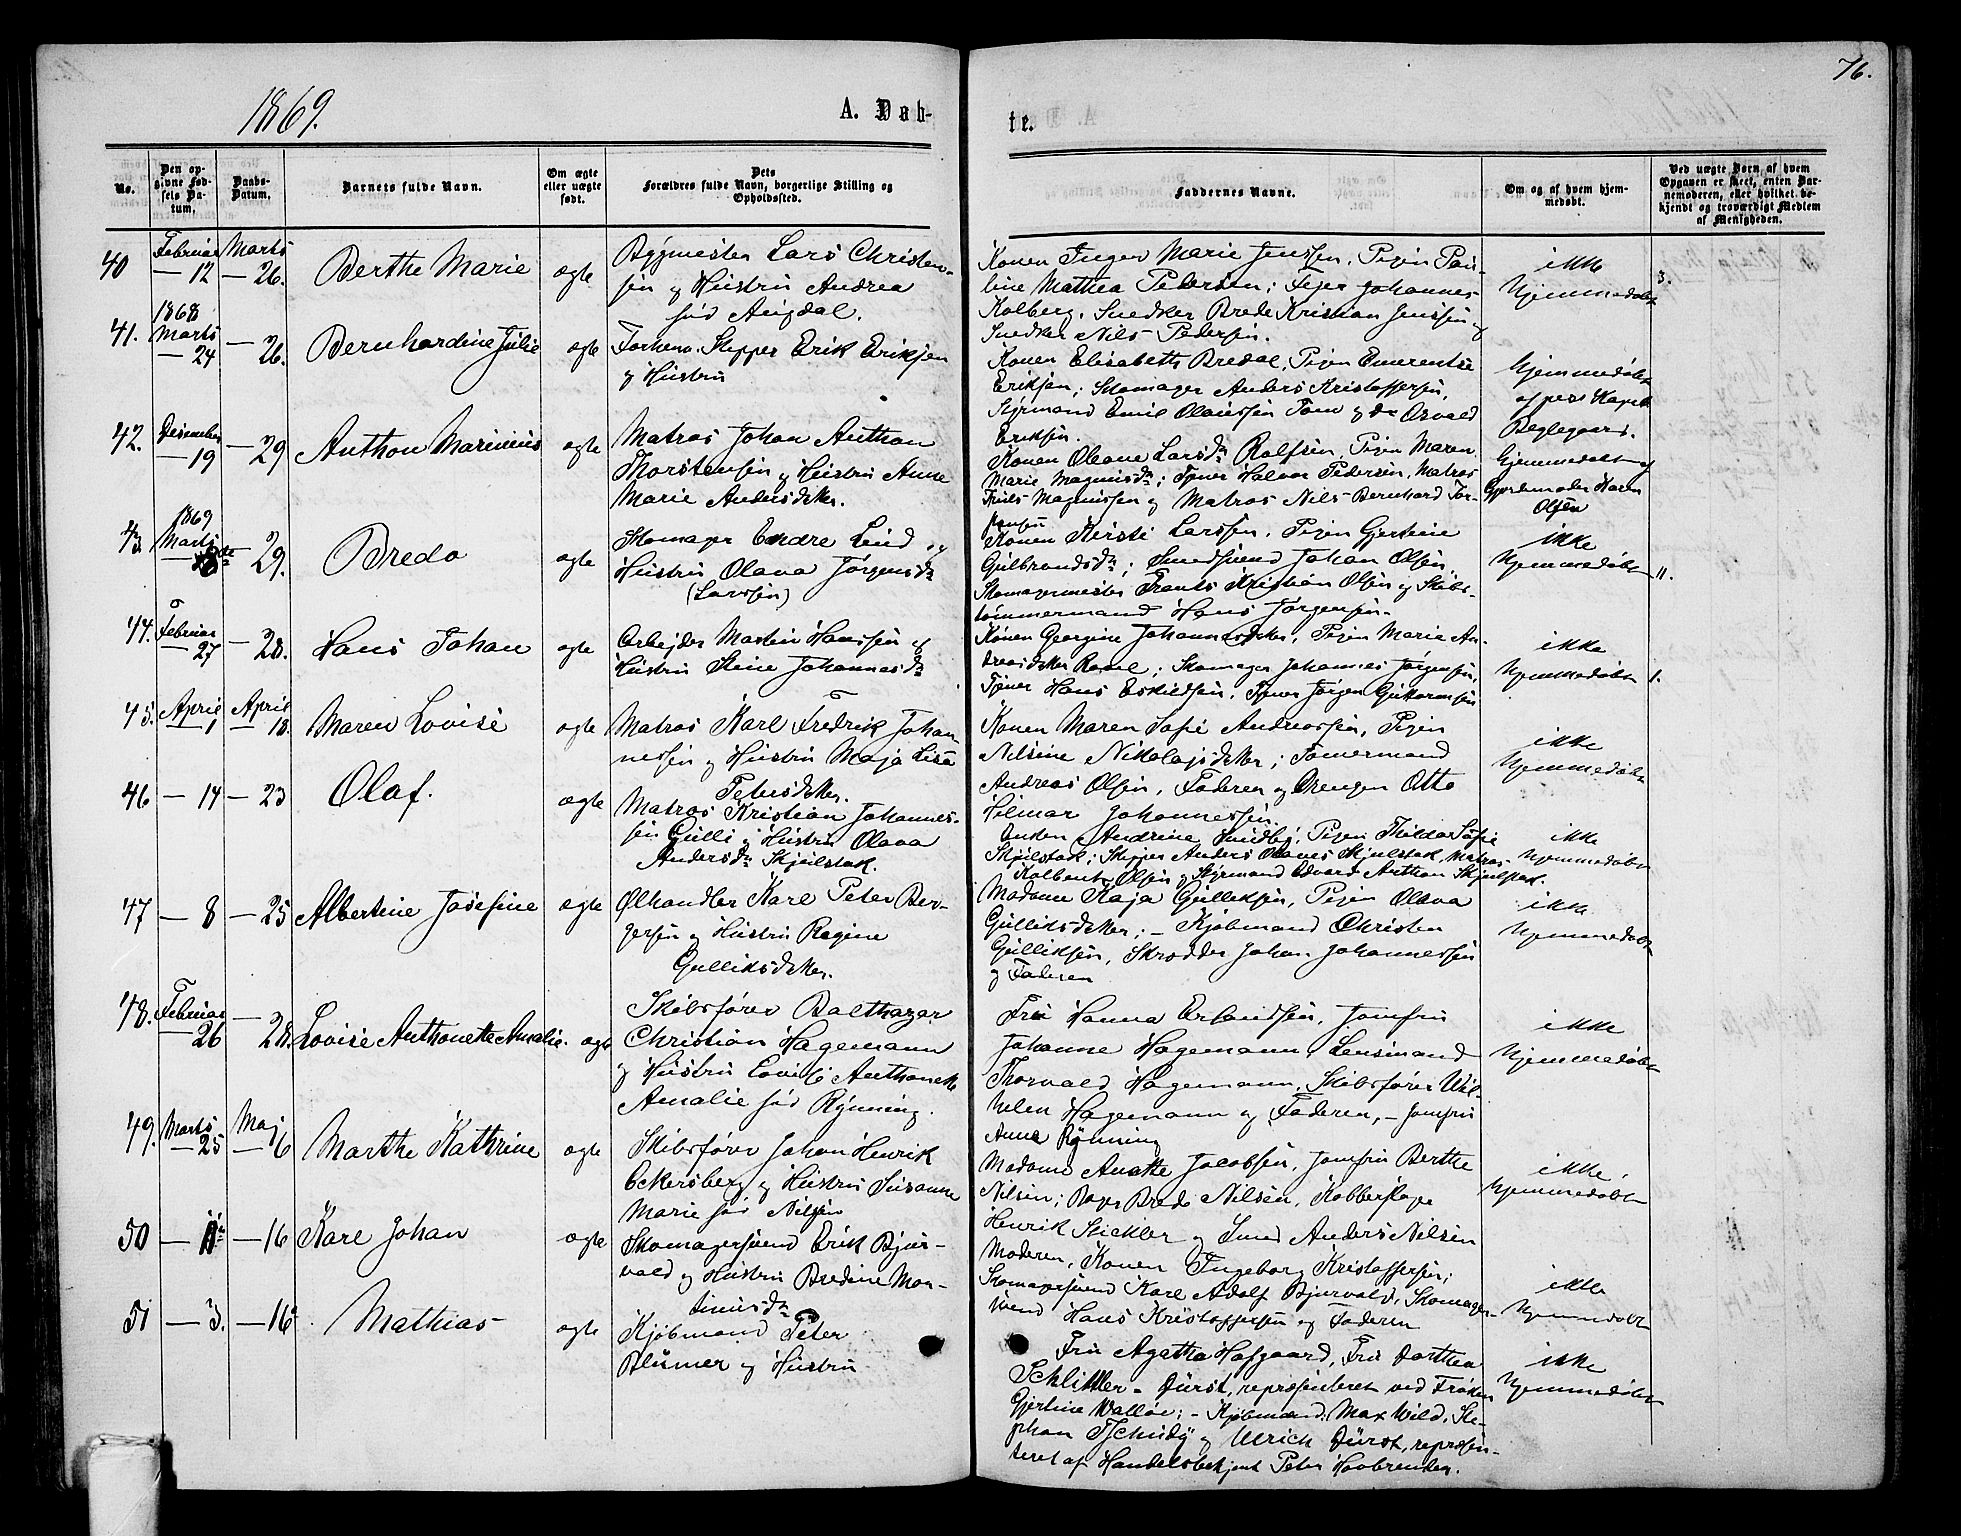 76.
1869.
A. Dab-
te.
No.
Den op-
givne Fød-
sels Da-
tum.
Daabs-
Datum.
Barnets fulde Navn.
Om ægte
eller uægte
født.
Dets
Forældres fulde Navn, borgerlige Stilling og
Opholdssted.
Faddernes Navne.
Om og af hvem hjem-
medøbt.
Ved uægte Børn af hvem
Opgaven er skeet, enten Bar-
nemoderen, eller hvilket be-
kjendt og troværdigt Medlem
af Menigheden.
40
Februar
— 12
Marts
— 26.
Berthe Marie
ægte
Bygmester Lars Christen-
sen og Hustru Andrea
død Aigdal.
Konen Inger Marie Jenssen, Pigen Pau-
line Mathea Pedersen; Fejer Johannes
Kolberg, Snedker Brede Kristian Jenssen og
Snedker Nils Pedersen.
ikke
hjemmedøbt
3.
41.
1868
Marts
— 24
— 26.
Bernhardine Julie
ægte
Forhenv. Skipper Erik Eriksen
og Hustru
Konen Elisabeth Bredal, Pigen Emerentse
Eriksen; Skomager Anders Kristoffersen,
Styrmand Emil Olaussen Tom og do Osvald
Eriksen.
hjemmedøbt
af pers. Kapel.
Beglegaard.
42.
Desember
— 19
— 29
Anthon Marinius
ægte
Matros Johan Anthon
Thorstensen og Hustru Anne
Marie Andersdtter.
Konen Oleane Larsdr Rolfsen, Pigen Maren
Marie Magnusdr; Tjener Halvor Pedersen, Matros
Magnussen og Matros Nils Bernhard Tor-
stensen
hjemmedøbt af
Gjordemoder Karen
Olsen
43.
1869
Marts
8de
— 29.
Bredo
ægte
Skomager Endre Lind og
Hustru Olava Jørgensdr
(Larssen)
Konen Kirsti Larssen, Pigen Gjertine
Gulbrandsdr; Smedsvend Johan Olsen,
Skomagermester Frants Kristian Olsen og Skibs-
tømmermand Hans Jørgensen.
ikke
hjemmedøbt
11.
44.
Februar
— 27
— 28.
Hans Johan
ægte
Arbejder Martin Hanssen og
Hustru Stine Johannasdr
Konen Georgine Johannesdtter, Pigen Marie An-
dreasdtter Roael; Skomager Johannes Jørgensen,
Tjener Hans Eskildsen, Tjener Jørgen Guttormsen
ikke
hjemmedøbt
1.
45.
April
— 1
April
— 18.
Maren Lovise
ægte
Matros Karl Fredrik Johan-
nessen og Hustru Maja Lisa
Petersdtter.
Konen Maren Sofie Andreassen, Pigen
Nilsine Nikolajsdtter; Tømermand
Andreas Olsen, Faderen og Drengen Otto
Hilmar Johannessen.
ikke
hjemmedøbt
46
— 14
— 23
Olaf.
ægte
Matros Kristian Johannes-
sen Gulli og Hustru Olava
Andersdr Skjølstak.
Enken Andrine Sundby, Pigen Thilda Sofie
Skjølstak; Skipper Anders Olaves Skjølstak, Matros
Kolbent Olsen og Styrmand Edvard Anthon Skjølstak.
ikke
hjemmedøbt
47
— 8
— 25
Albertine Josefine
ægte
Ølhandler Karl Peter Ber-
gersen og Hustru Regine
Gulliksdtter.
Madame Kaja Gulliksen, Pigen Olava
Gulliksdtter; — Kjøbmand Christen
Gulliksen, Skrædder Johan Johannessen
og Faderen
ikke
hjemmedøbt
48.
Februar
— 26
— 28.
Lovise Anthonette Amalie.
ægte
Skibsfører Balthazar
Christian Hagemann
og Hustru Lovise Anthonette
Amalie fød Rynning.
Fru Hanna Erlandsen, Jomfru
Johanne Hagemann, Lensmand
Thorvald Hagemann, Skibsfører Wil-
helm Hagemann og Faderen, — Jomfru
Anne Rynning
ikke
hjemmedøbt
49.
Marts
— 25
Maj
— 6
Marthe Kathrine
ægte
Skibsfører Johan Henrik
Eckersberg og Hustru Susanne
Marie fød Nilsen
Madame Anette Jacobsen, Jomfru Berthe
Nilsen; Bager Brede Nilsen, Kobberslager
Henrik Stickler og Smed Anders Nilsen
ikke
hjemmedøbt
50
— 11te
— 16
Karl Johan
ægte
Skomagersvend Erik Bjur-
vald og Hustru Bredine Mar-
tinusdr
Moderen, Konen Ingeborg Kristoffersen;
Skomagersvend Karl Adolf Bjurvald, Skomager-
svend Hans Kristoffersen og Faderen
ikke
hjemmedøbt
51
— 3.
— 16
Mathias
ægte
Kjøbmand Peter
Blumer og Hustru
Fru Agatha Hofgaard, Fru Dorthea
Schlittler-Dürst, repræsenteret ved Frøken
Gjertine Walløe; — Kjøbmand Max Wild, Ste-
phan Tschudy og Ulrich Dürst, repræsen-
teret af Handelsbetjent Peter Hoobrenden.
ikke
hjemmedøbt